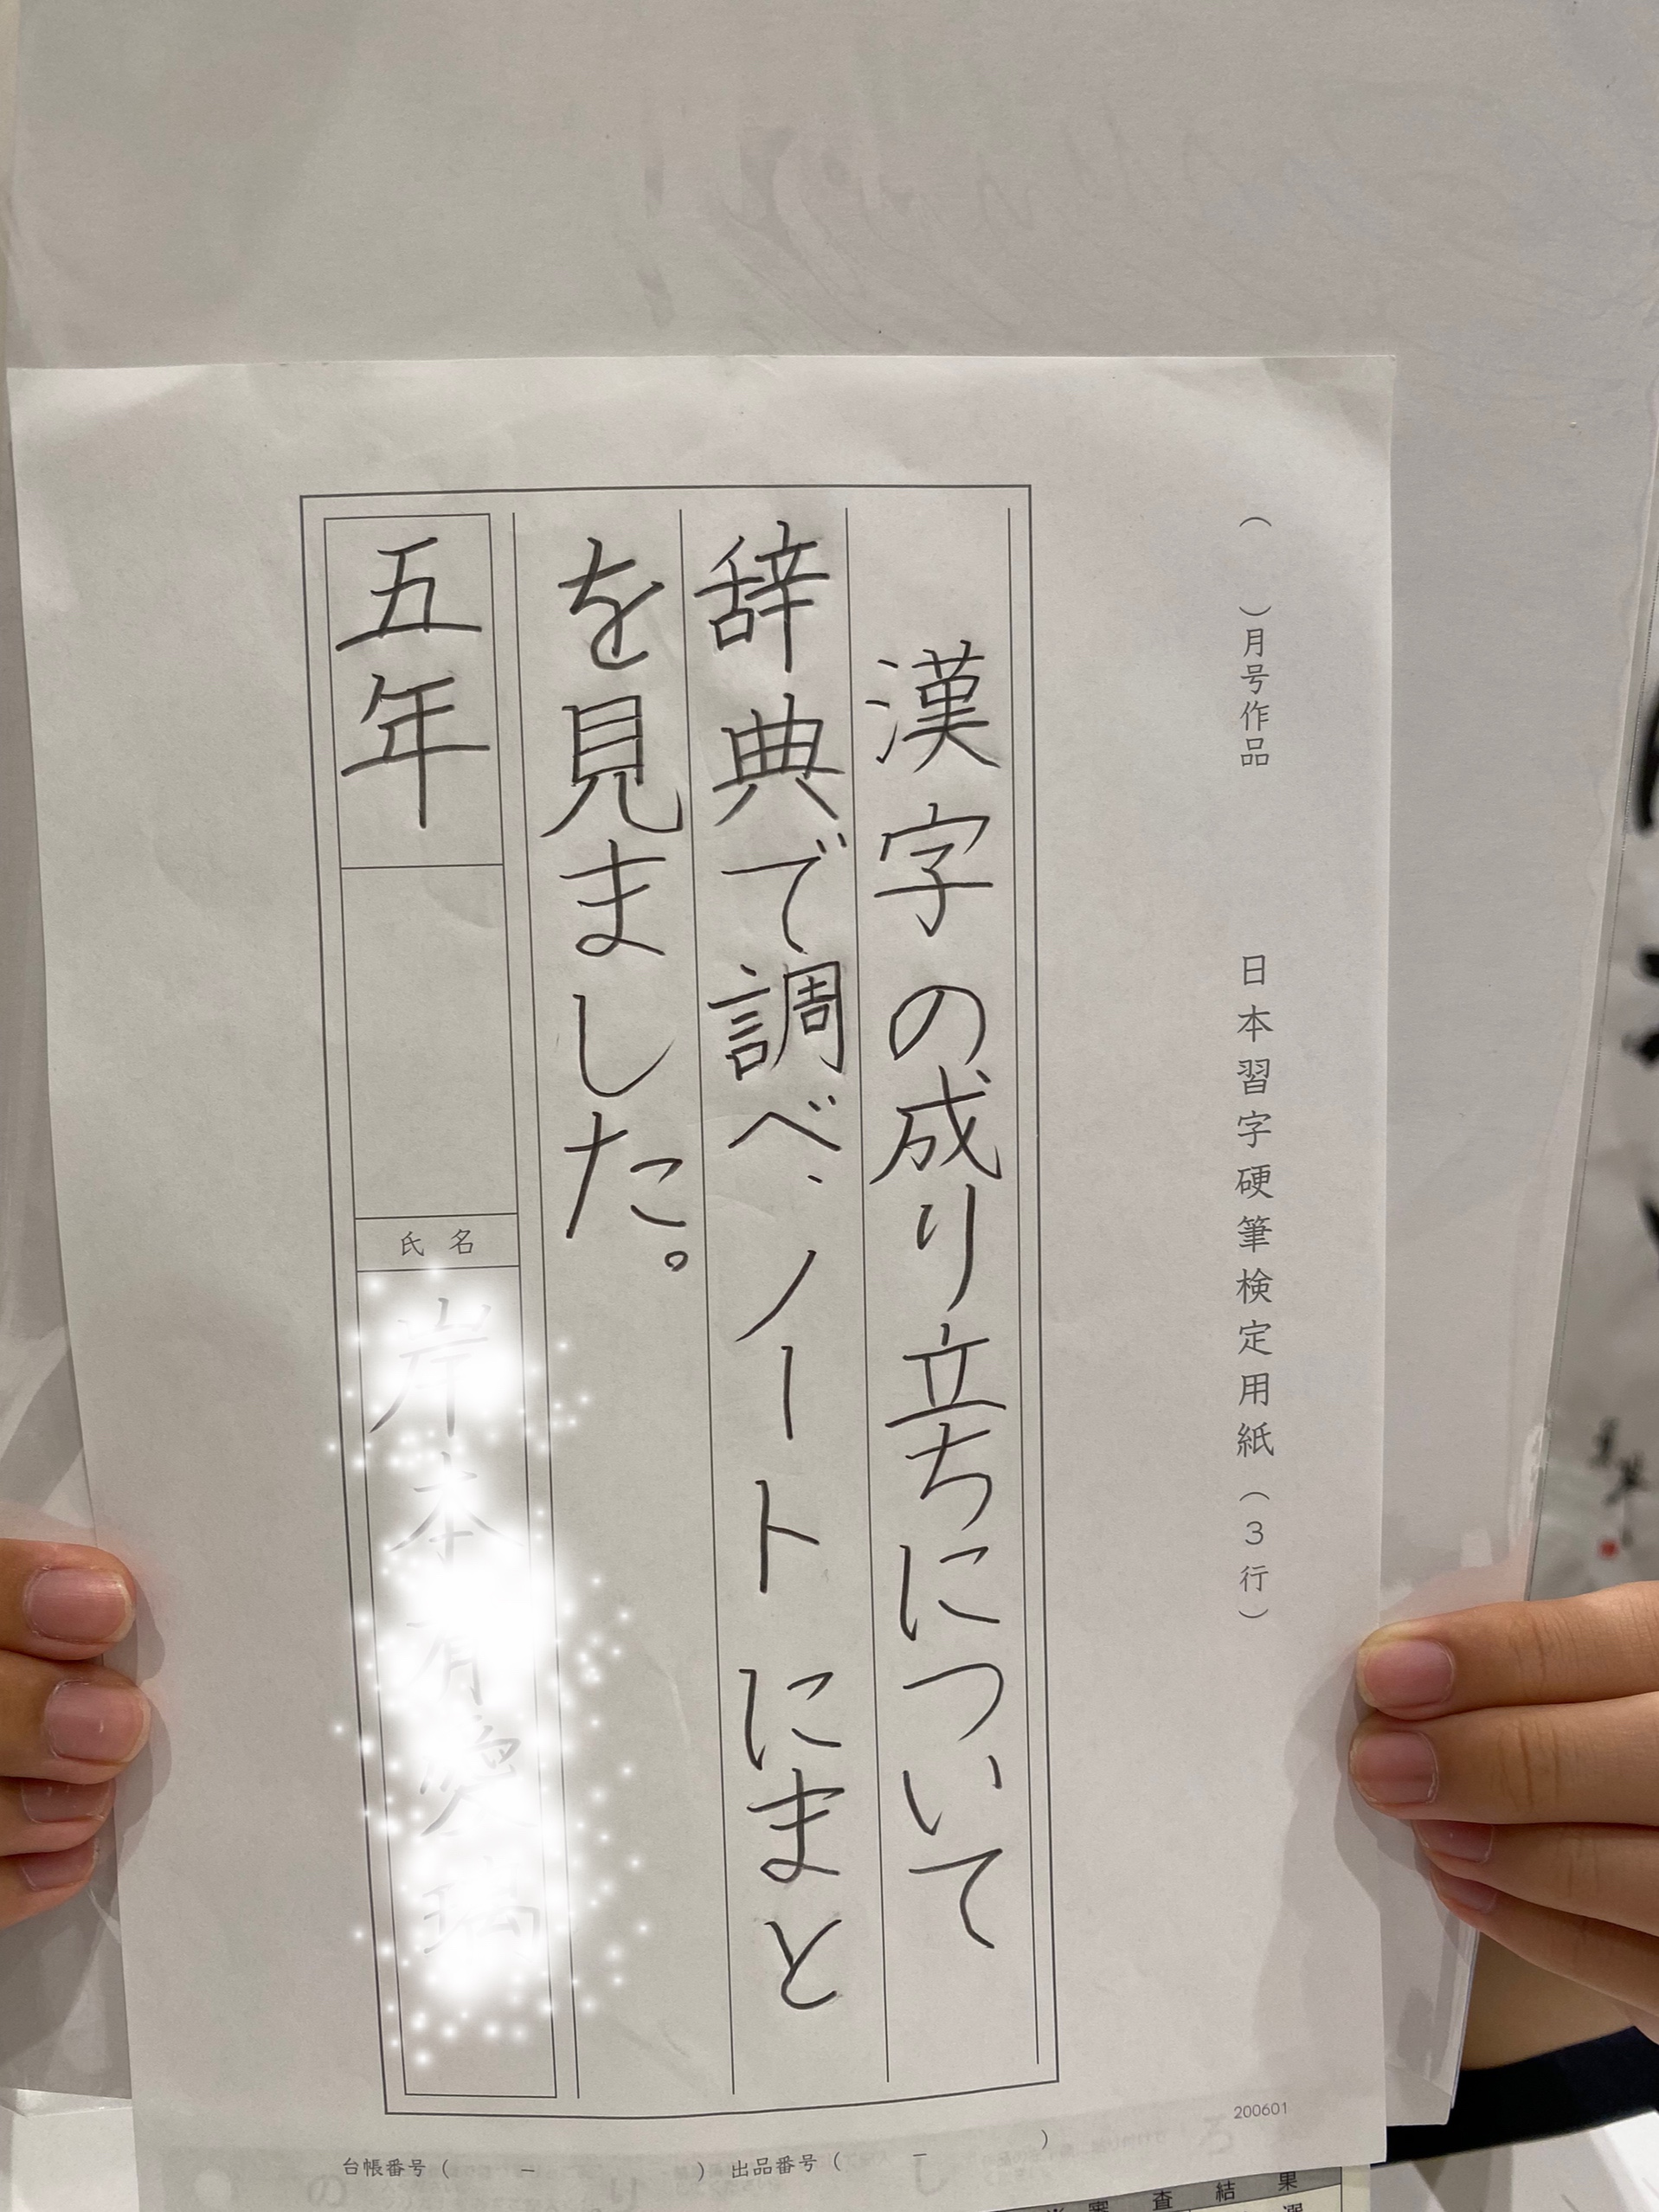 （　）月号作品　日本習字硬筆検定用紙（3行）
漢字の成り立ちについて
辞典で調べ、ノートにまと
を見ました。
五年
氏名
200601
台帳番号（　－　）　出品番号（　－　）
審査結果